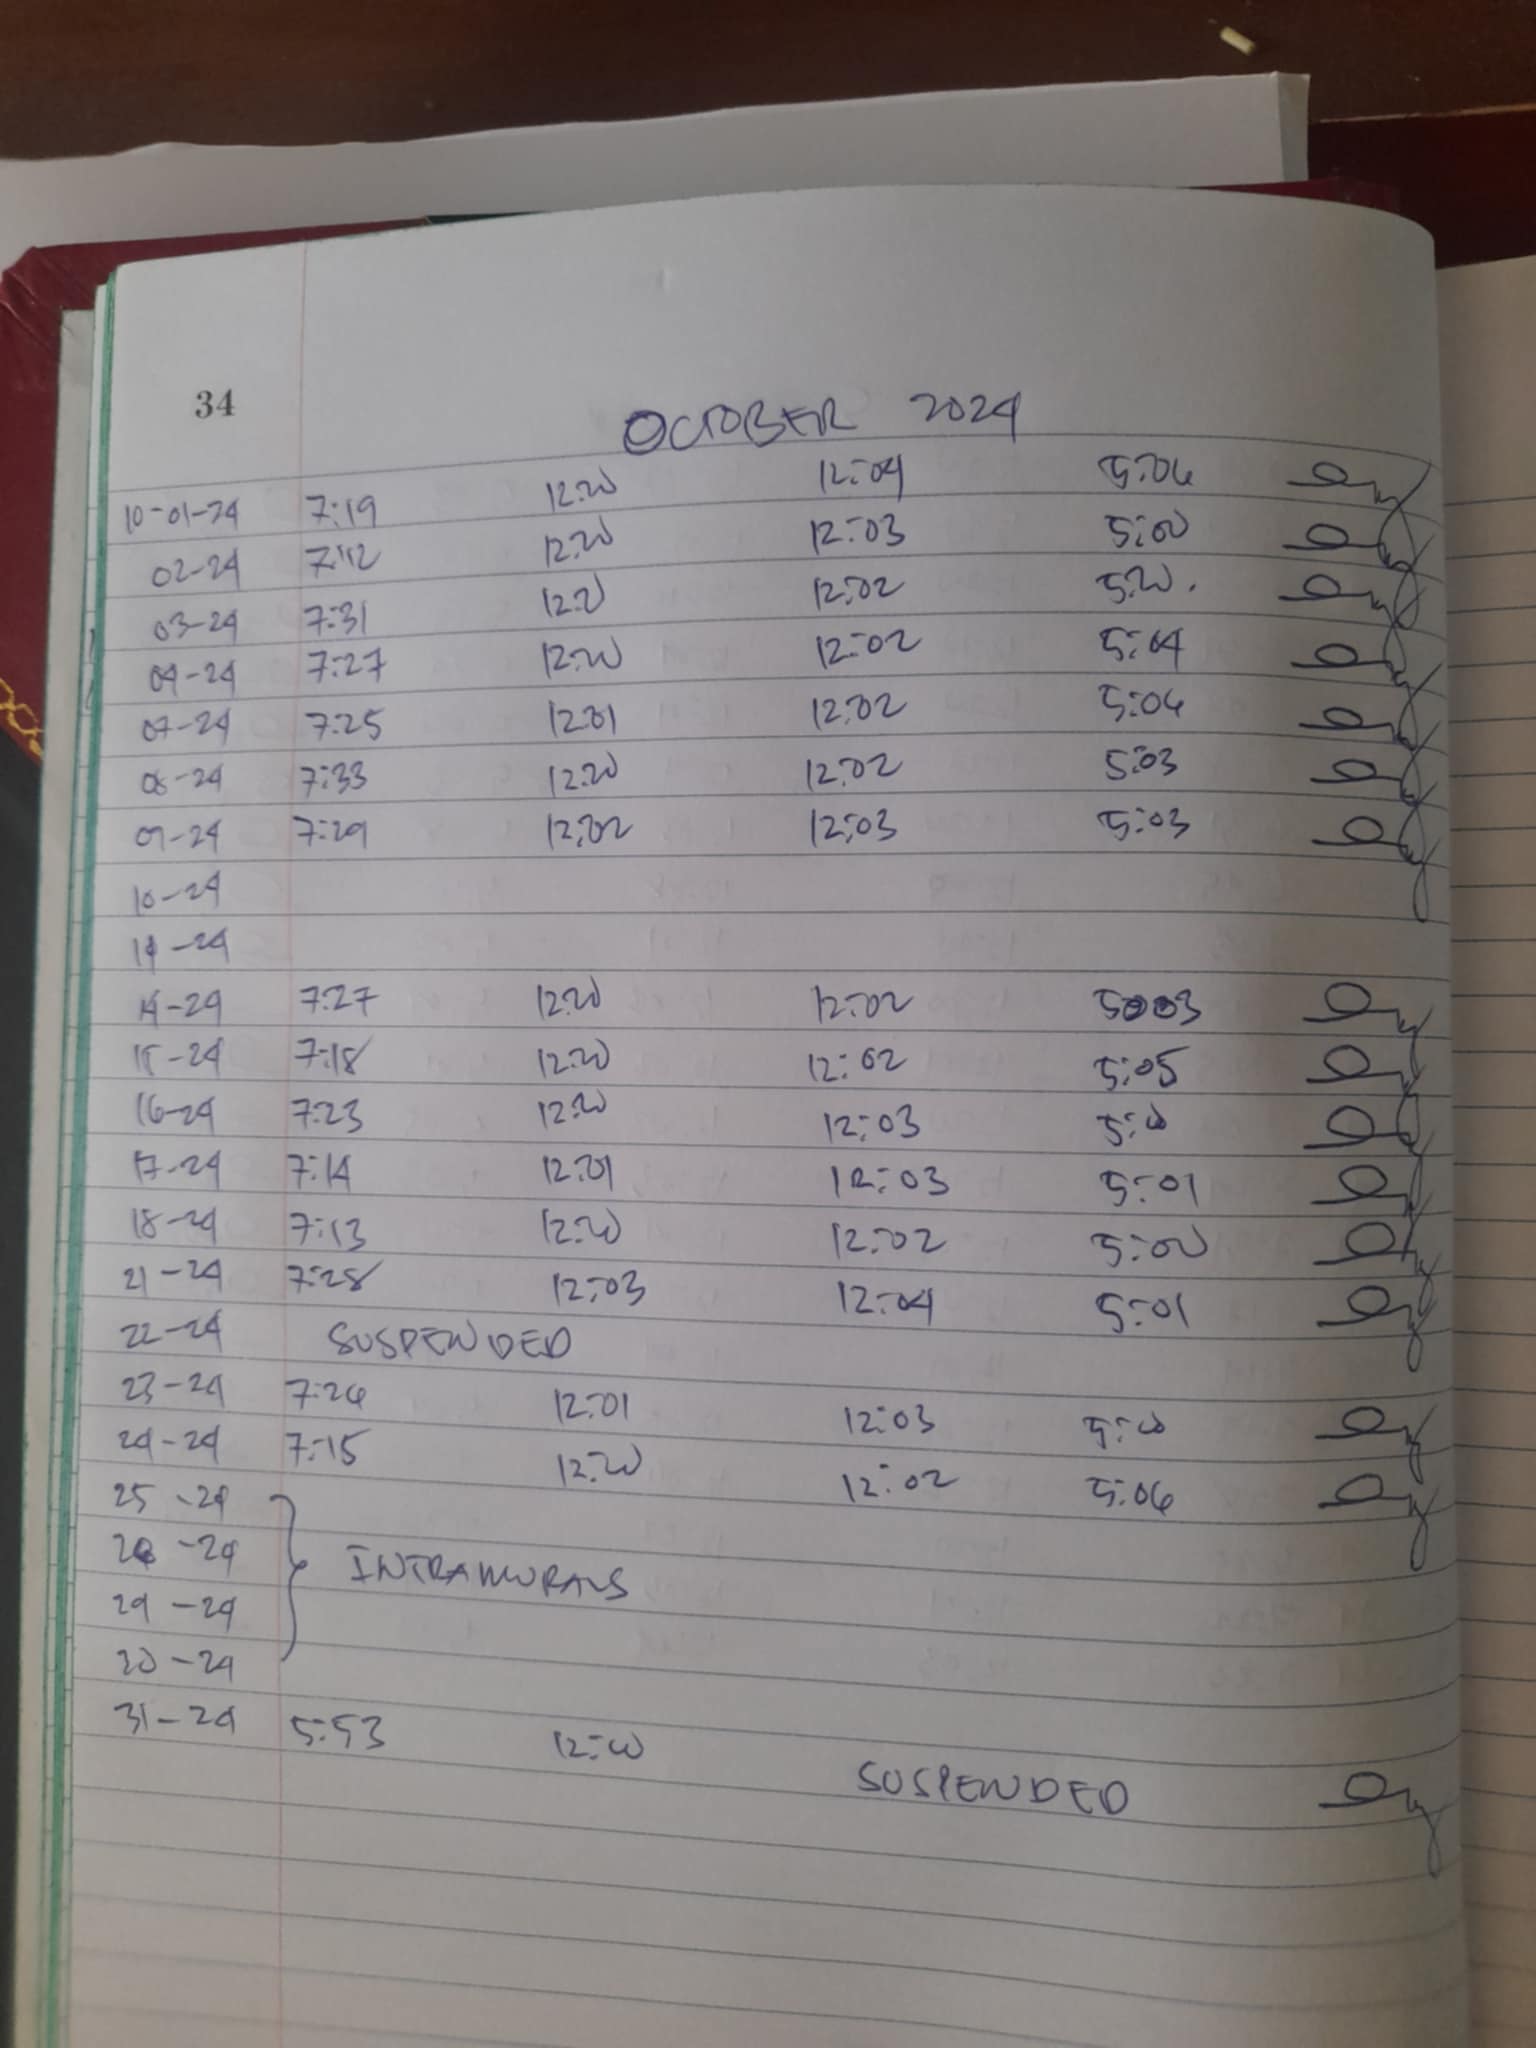 34
OCTOBER 2024
10-01-24 7:19 12:00 12:04 5:06
02-24 7:12 12:00 12:03 5:00
03-24 7:31 12:00 12:02 5:00.
04-24 7:27 12:00 12:02 5:04
07-24 7:25 12:01 12:02 5:06
08-24 7:33 12:00 12:02 5:03
09-24 7:29 12:02 12:03 5:03
10-24
11-24
14-24 7:27 12:00 12:02 5:03
15-24 7:18 12:00 12:02 5:05
16-24 7:23 12:00 12:03 5:00
17-24 7:14 12:01 12:03 5:01
18-24 7:13 12:00 12:02 5:00
21-24 7:28 12:03 12:04 5:01
22-24 SUSPENDED
23-24 7:26 12:01 12:03 5:00
24-24 7:15 12:00 12:02 5:06
25-24
28-24 INTRAMURALS
29-24
30-24
31-24 5:53 12:00 SUSPENDED